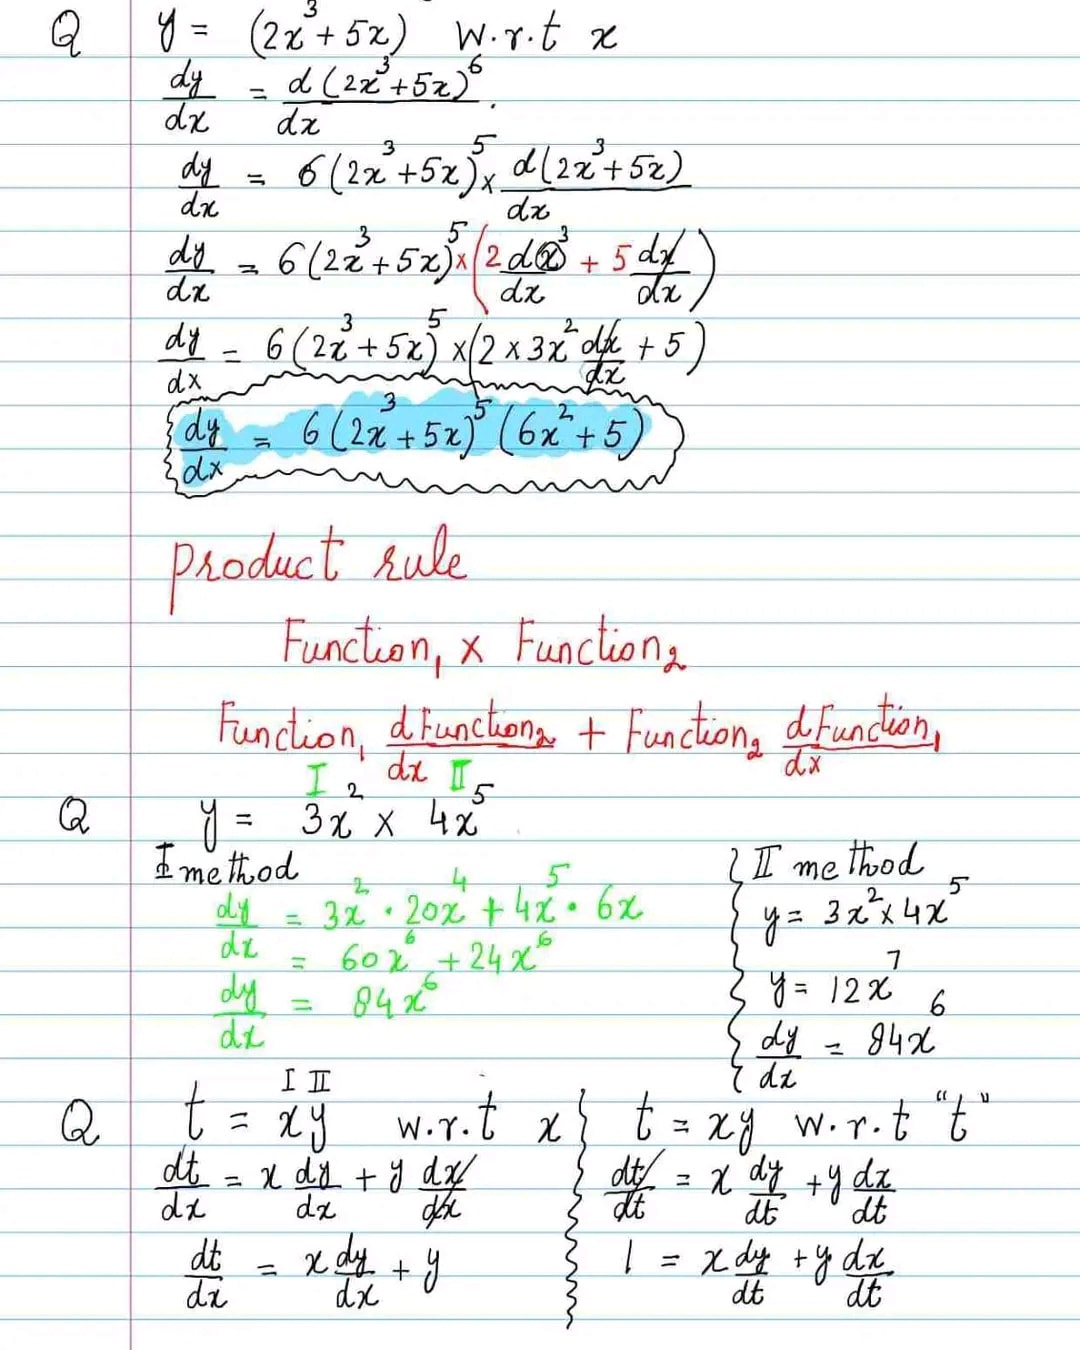 Q y = (2x³ + 5x) w.r.t x
dy/dx = d(2x³+5x)⁶/dx
dy/dx = 6(2x³+5x)⁵ x d(2x³+5x)/dx
dy/dx = 6(2x³+5x)⁵ x (2 d(x)³/dx + 5 dx/dx)
dy/dx = 6(2x³+5x)⁵ x (2 x 3x² dx/dx + 5)
dy/dx = 6(2x³+5x)⁵ (6x²+5)
product rule
Function₁ x Function₂
Function₁ dFunction₂/dx + Function₂ dFunction₁/dx
I II
Q y = 3x² x 4x⁵
I method
dy/dx = 3x² · 20x⁴ + 4x⁵ · 6x
= 60x⁶ + 24x⁶
dy/dx = 84x⁶
II method
y = 3x² x 4x⁵
y = 12x⁷
dy/dx = 84x⁶
I II
Q t = xy w.r.t x
dt/dx = x dy/dx + y dx/dx
dt/dx = x dy/dx + y
t = xy w.r.t "t"
dt/dt = x dy/dt + y dx/dt
1 = x dy/dt + y dx/dt